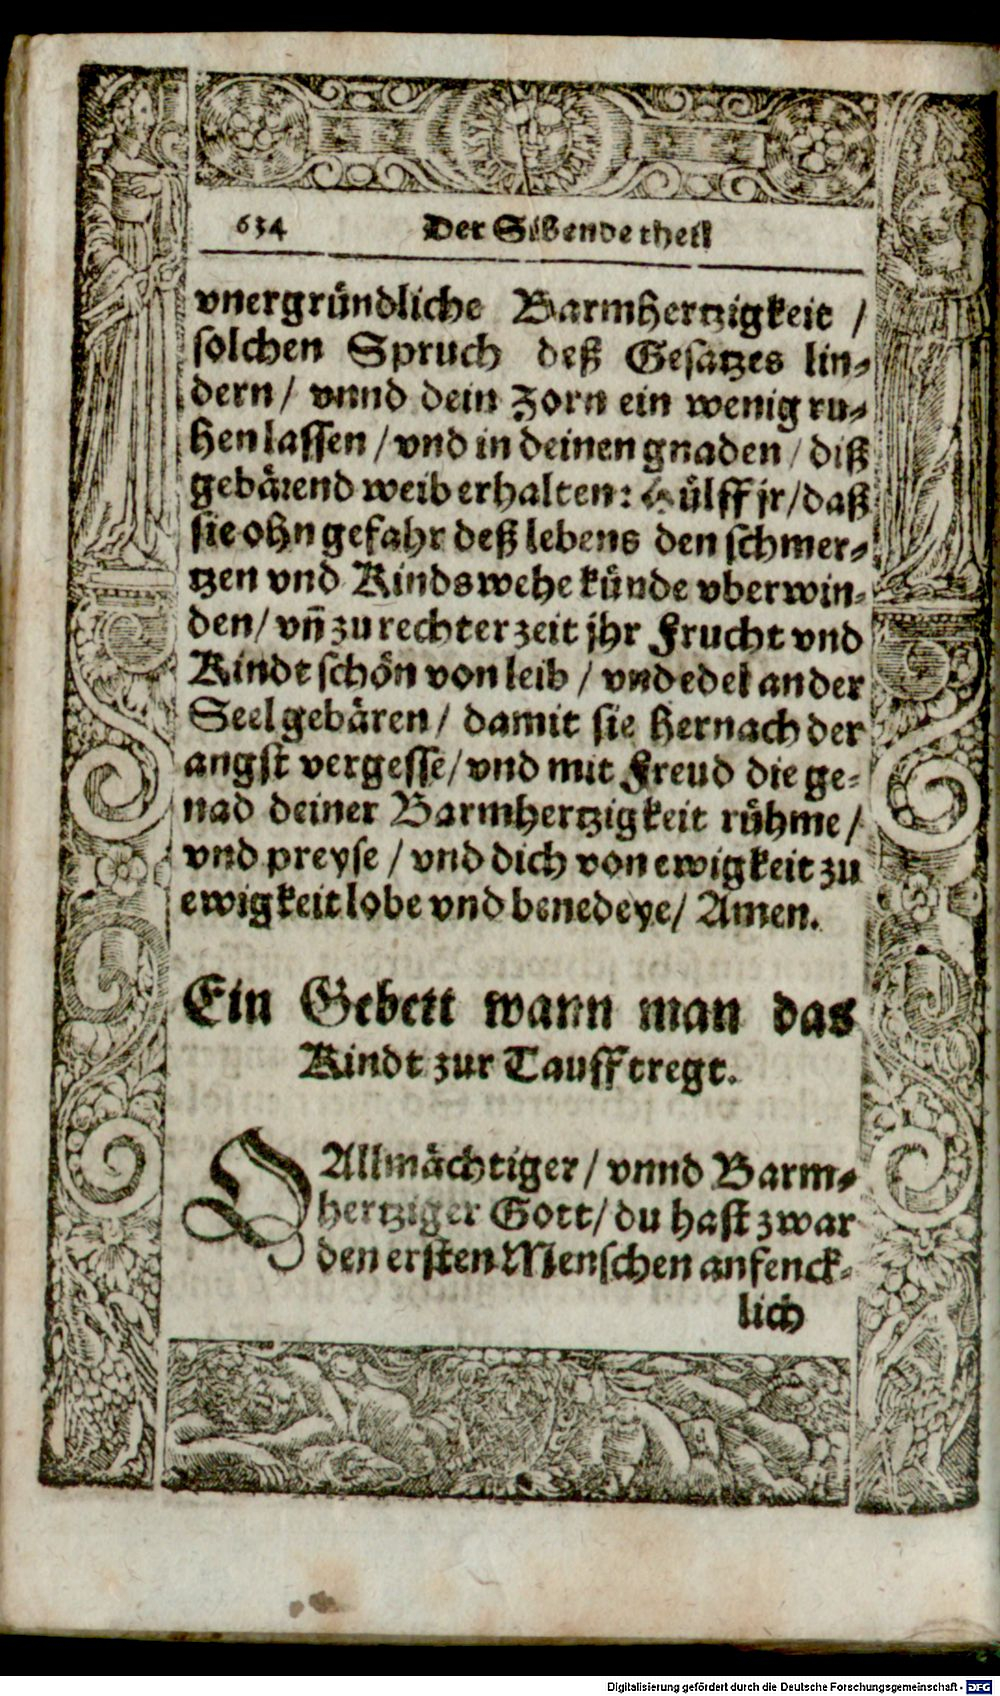 634 Der Sibende theil
vnergründliche Barmhertzigkeit /
solchen Spruch deß Gesatzes lin-
dern / vnnd dein Zorn ein wenig ru-
hen lassen / vnd in deinen gnaden / diß
gebärend weib erhalten: Hülff jr / daß
sie ohn gefahr deß lebens den schmer-
tzen vnd Kindswehe künde vberwin-
den / vn̄ zu rechter zeit jhr Frucht vnd
Kindt schön von leib / vnd edel an der
Seel gebären / damit sie hernach der
angst vergesse / vnd mit Freud die ge-
nad deiner Barmhertzigkeit rühme /
vnd preyse / vnd dich von ewigkeit zu
ewigkeit lobe vnd benedeye / Amen.
Ein Gebett wann man das
Kindt zur Tauff tregt.
O Allmächtiger / vnnd Barm-
hertziger Gott / du hast zwar
den ersten Menschen anfenck-
lich
Digitalisierung gefördert durch die Deutsche Forschungsgemeinschaft - DFG